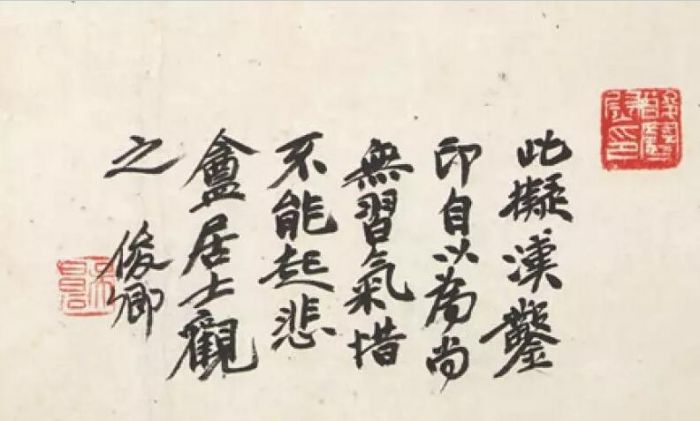 此擬漢鑿
印自以為尚
無習氣惜
不能起悲
盦居士觀
之 俊卿